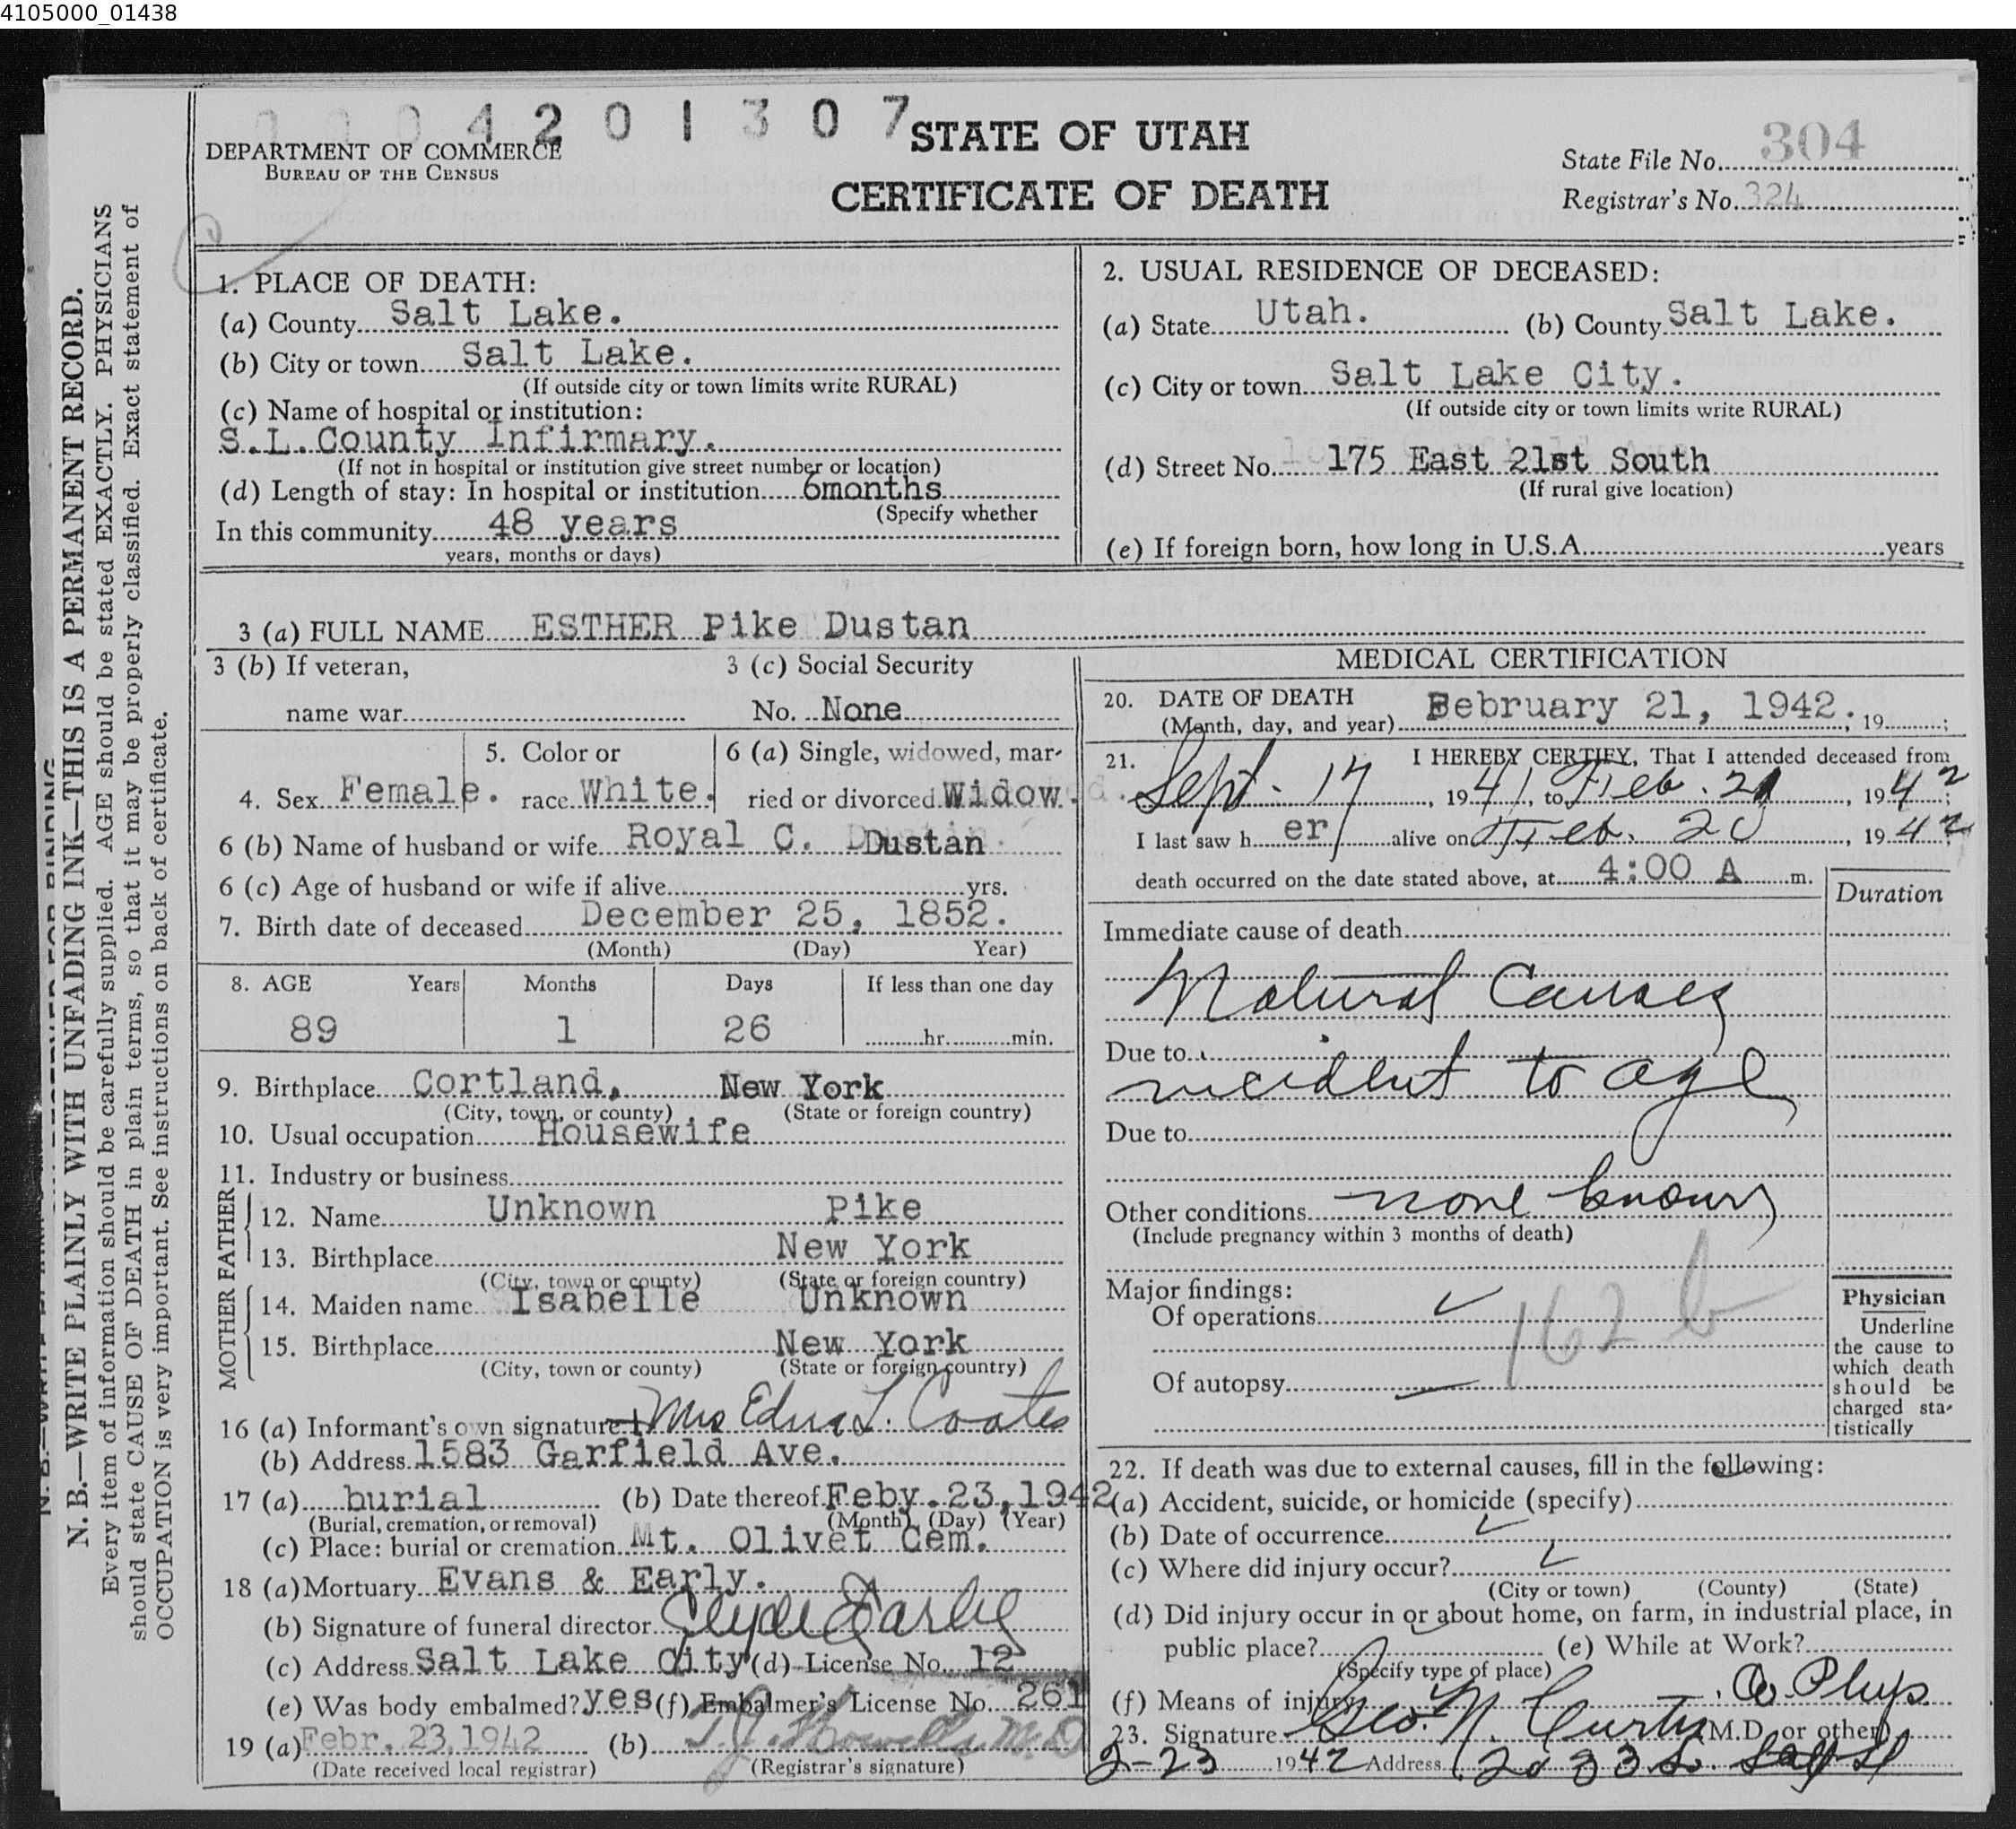 4105000_01438
0004201307
DEPARTMENT OF COMMERCE
BUREAU OF THE CENSUS
STATE OF UTAH
CERTIFICATE OF DEATH
State File No. 304
Registrar's No. 324
N. B.—WRITE PLAINLY WITH UNFADING INK—THIS IS A PERMANENT RECORD.
Every item of information should be carefully supplied. AGE should be stated EXACTLY. PHYSICIANS
should state CAUSE OF DEATH in plain terms, so that it may be properly classified. Exact statement of
OCCUPATION is very important. See instructions on back of certificate.
1. PLACE OF DEATH:
(a) County Salt Lake.
(b) City or town Salt Lake.
(If outside city or town limits write RURAL)
(c) Name of hospital or institution:
S.L.County Infirmary.
(If not in hospital or institution give street number or location)
(d) Length of stay: In hospital or institution 6months
(Specify whether
In this community 48 years
years, months or days)
2. USUAL RESIDENCE OF DECEASED:
(a) State Utah. (b) County Salt Lake.
(c) City or town Salt Lake City.
(If outside city or town limits write RURAL)
(d) Street No. 175 East 21st South
(If rural give location)
(e) If foreign born, how long in U.S.A. years
3 (a) FULL NAME ESTHER Pike Dustan
3 (b) If veteran,
name war
3 (c) Social Security
No. None
4. Sex Female.
5. Color or
race White.
6 (a) Single, widowed, mar-
ried or divorced Widow.
6 (b) Name of husband or wife Royal C. Dustan
6 (c) Age of husband or wife if alive yrs.
7. Birth date of deceased December 25, 1852.
(Month) (Day) Year)
8. AGE Years Months Days If less than one day
89 1 26 hr. min.
9. Birthplace Cortland, New York
(City, town, or county) (State or foreign country)
10. Usual occupation Housewife
11. Industry or business
FATHER
12. Name Unknown Pike
13. Birthplace New York
(City, town or county) (State or foreign country)
MOTHER
14. Maiden name Isabelle Unknown
15. Birthplace New York
(City, town or county) (State or foreign country)
16 (a) Informant's own signature Mrs Edna L. Coates
(b) Address 1583 Garfield Ave.
17 (a) burial (b) Date thereof Feby. 23, 1942
(Burial, cremation, or removal) (Month) (Day) (Year)
(c) Place: burial or cremation Mt. Olivet Cem.
18 (a) Mortuary Evans & Early.
(b) Signature of funeral director Clyde Early
(c) Address Salt Lake City (d) License No. 12
(e) Was body embalmed? yes (f) Embalmer's License No. 261
19 (a) Febr. 23, 1942 (b) T.J. Howells M.D
(Date received local registrar) (Registrar's signature)
MEDICAL CERTIFICATION
20. DATE OF DEATH
(Month, day, and year) February 21, 1942. 19 ;
21. I HEREBY CERTIFY, That I attended deceased from
Sept. 17, 1941, to Feb. 21, 1942;
I last saw her alive on Feb. 20, 1942;
death occurred on the date stated above, at 4:00 A m.
Duration
Immediate cause of death
Natural Causes
Due to
incident to age
Due to
Other conditions none known
(Include pregnancy within 3 months of death)
Major findings:
Of operations
162 b
Of autopsy
Physician
Underline
the cause to
which death
should be
charged sta-
tistically
22. If death was due to external causes, fill in the following:
(a) Accident, suicide, or homicide (specify)
(b) Date of occurrence
(c) Where did injury occur?
(City or town) (County) (State)
(d) Did injury occur in or about home, on farm, in industrial place, in
public place? (e) While at Work?
(Specify type of place)
(f) Means of injury Co Phys
23. Signature Geo. N. Curtis (M.D. or other)
2-23 1942 Address 2033 So.